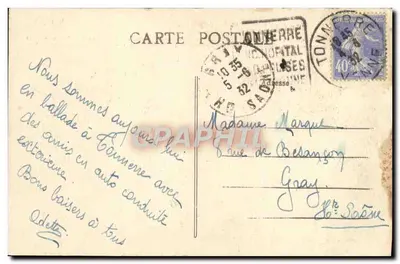 CARTE POSTALE
TONNERRE
HOPITAL
TONNERRE
10 35
5 6
32
SAONE
40
Nous sommes aujourd'hui
en ballade à Tonnerre avec
des amis en auto conduite
extérieure.
Bons baisers à tous
Odette
Madame Marque
8 rue de Besançon
Gray
Hte Saône
CARTES-POSTALES.COM